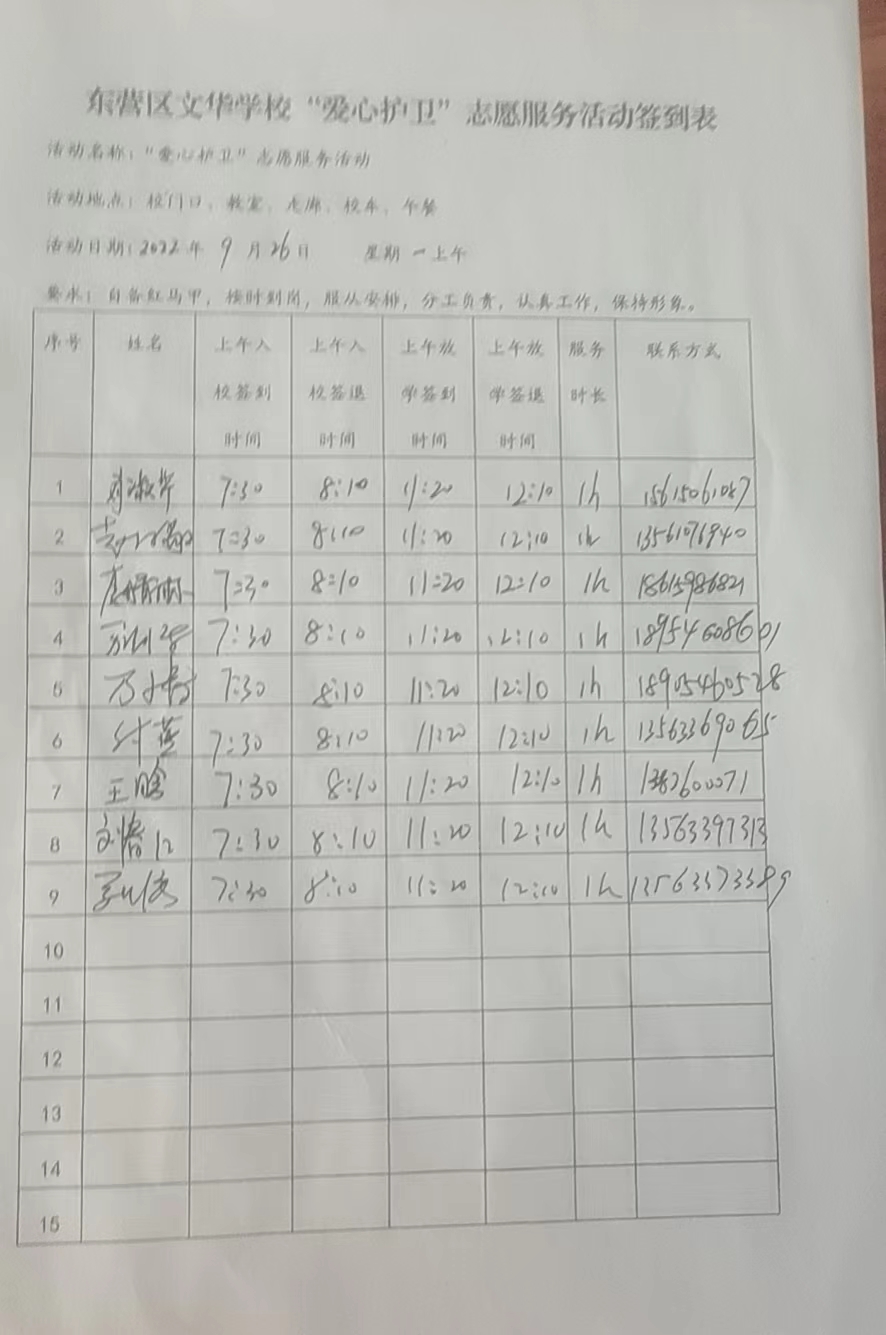 东营区文华学校“爱心护卫”志愿服务活动签到表
活动名称：“爱心护卫”志愿服务活动
活动地点：校门口、教室、走廊、校车、午餐
活动日期：2022年 9 月 26 日 星期一上午
要求：自备红马甲，按时到岗，服从安排，分工负责，认真工作，保持形象。
序号 姓名 上午入校签到时间 上午入校签退时间 上午放学签到时间 上午放学签退时间 服务时长 联系方式
1 7:30 8:10 11:20 12:10 1h 15615061087
2 7:30 8:10 11:20 12:10 1h 13561076940
3 7:30 8:10 11:20 12:10 1h 18615986821
4 7:30 8:10 11:20 12:10 1h 18954608601
5 7:30 8:10 11:20 12:10 1h 18905460528
6 付燕 7:30 8:10 11:20 12:10 1h 13563369065
7 王晗 7:30 8:10 11:20 12:10 1h
8 7:30 8:10 11:20 12:10 1h 13563397313
9 7:30 8:10 11:20 12:10 1h 13563373389
10
11
12
13
14
15